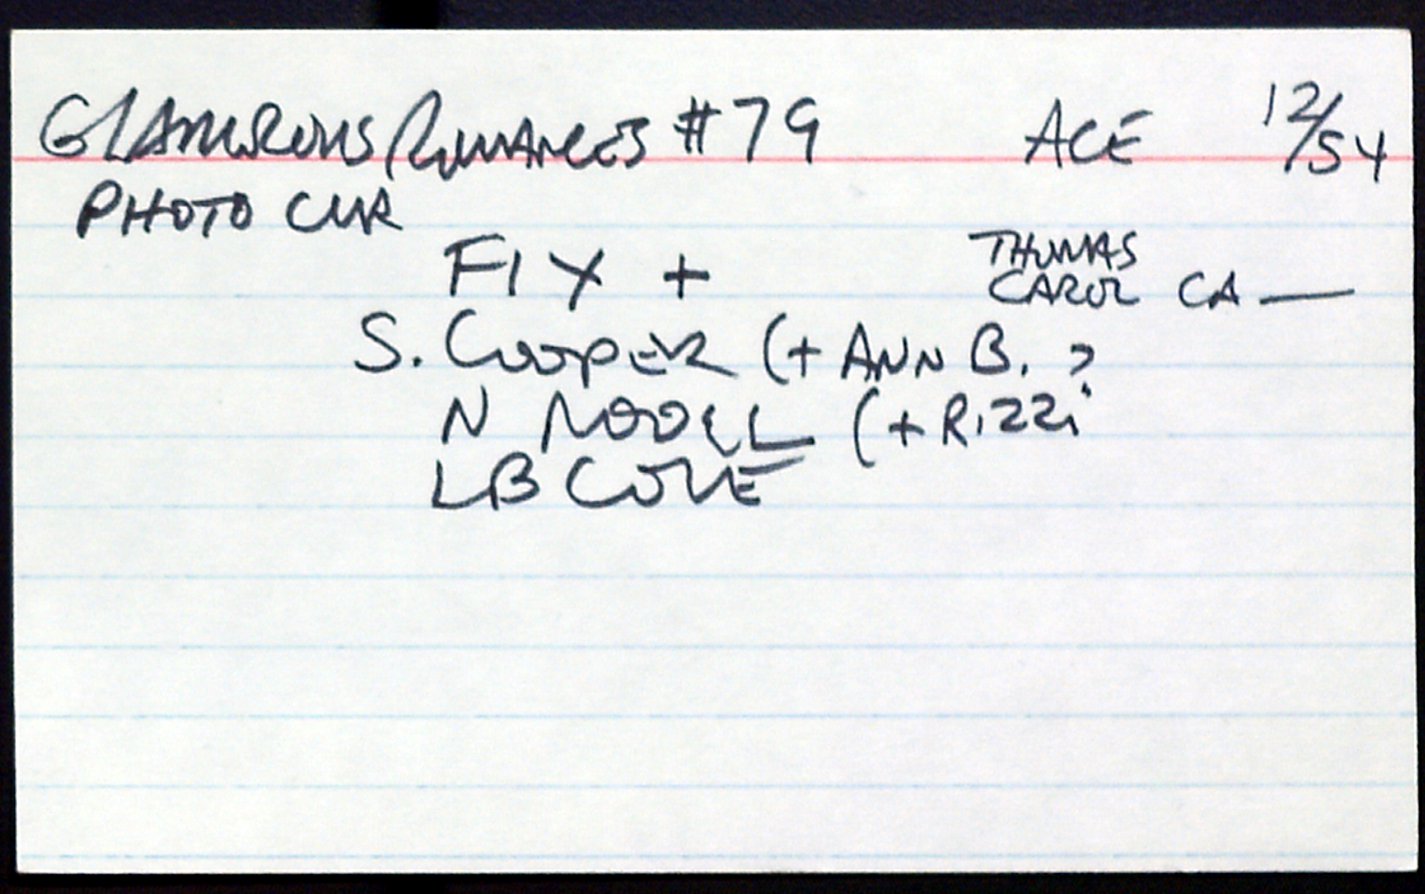 GLAMOROUS ROMANCES #79 ACE 12/54
PHOTO CVR
FIX +
THOMAS
CAROL CA —
S. COOPER (+ ANN B. ?
N NODEL (+ RIZZI
LB COLE